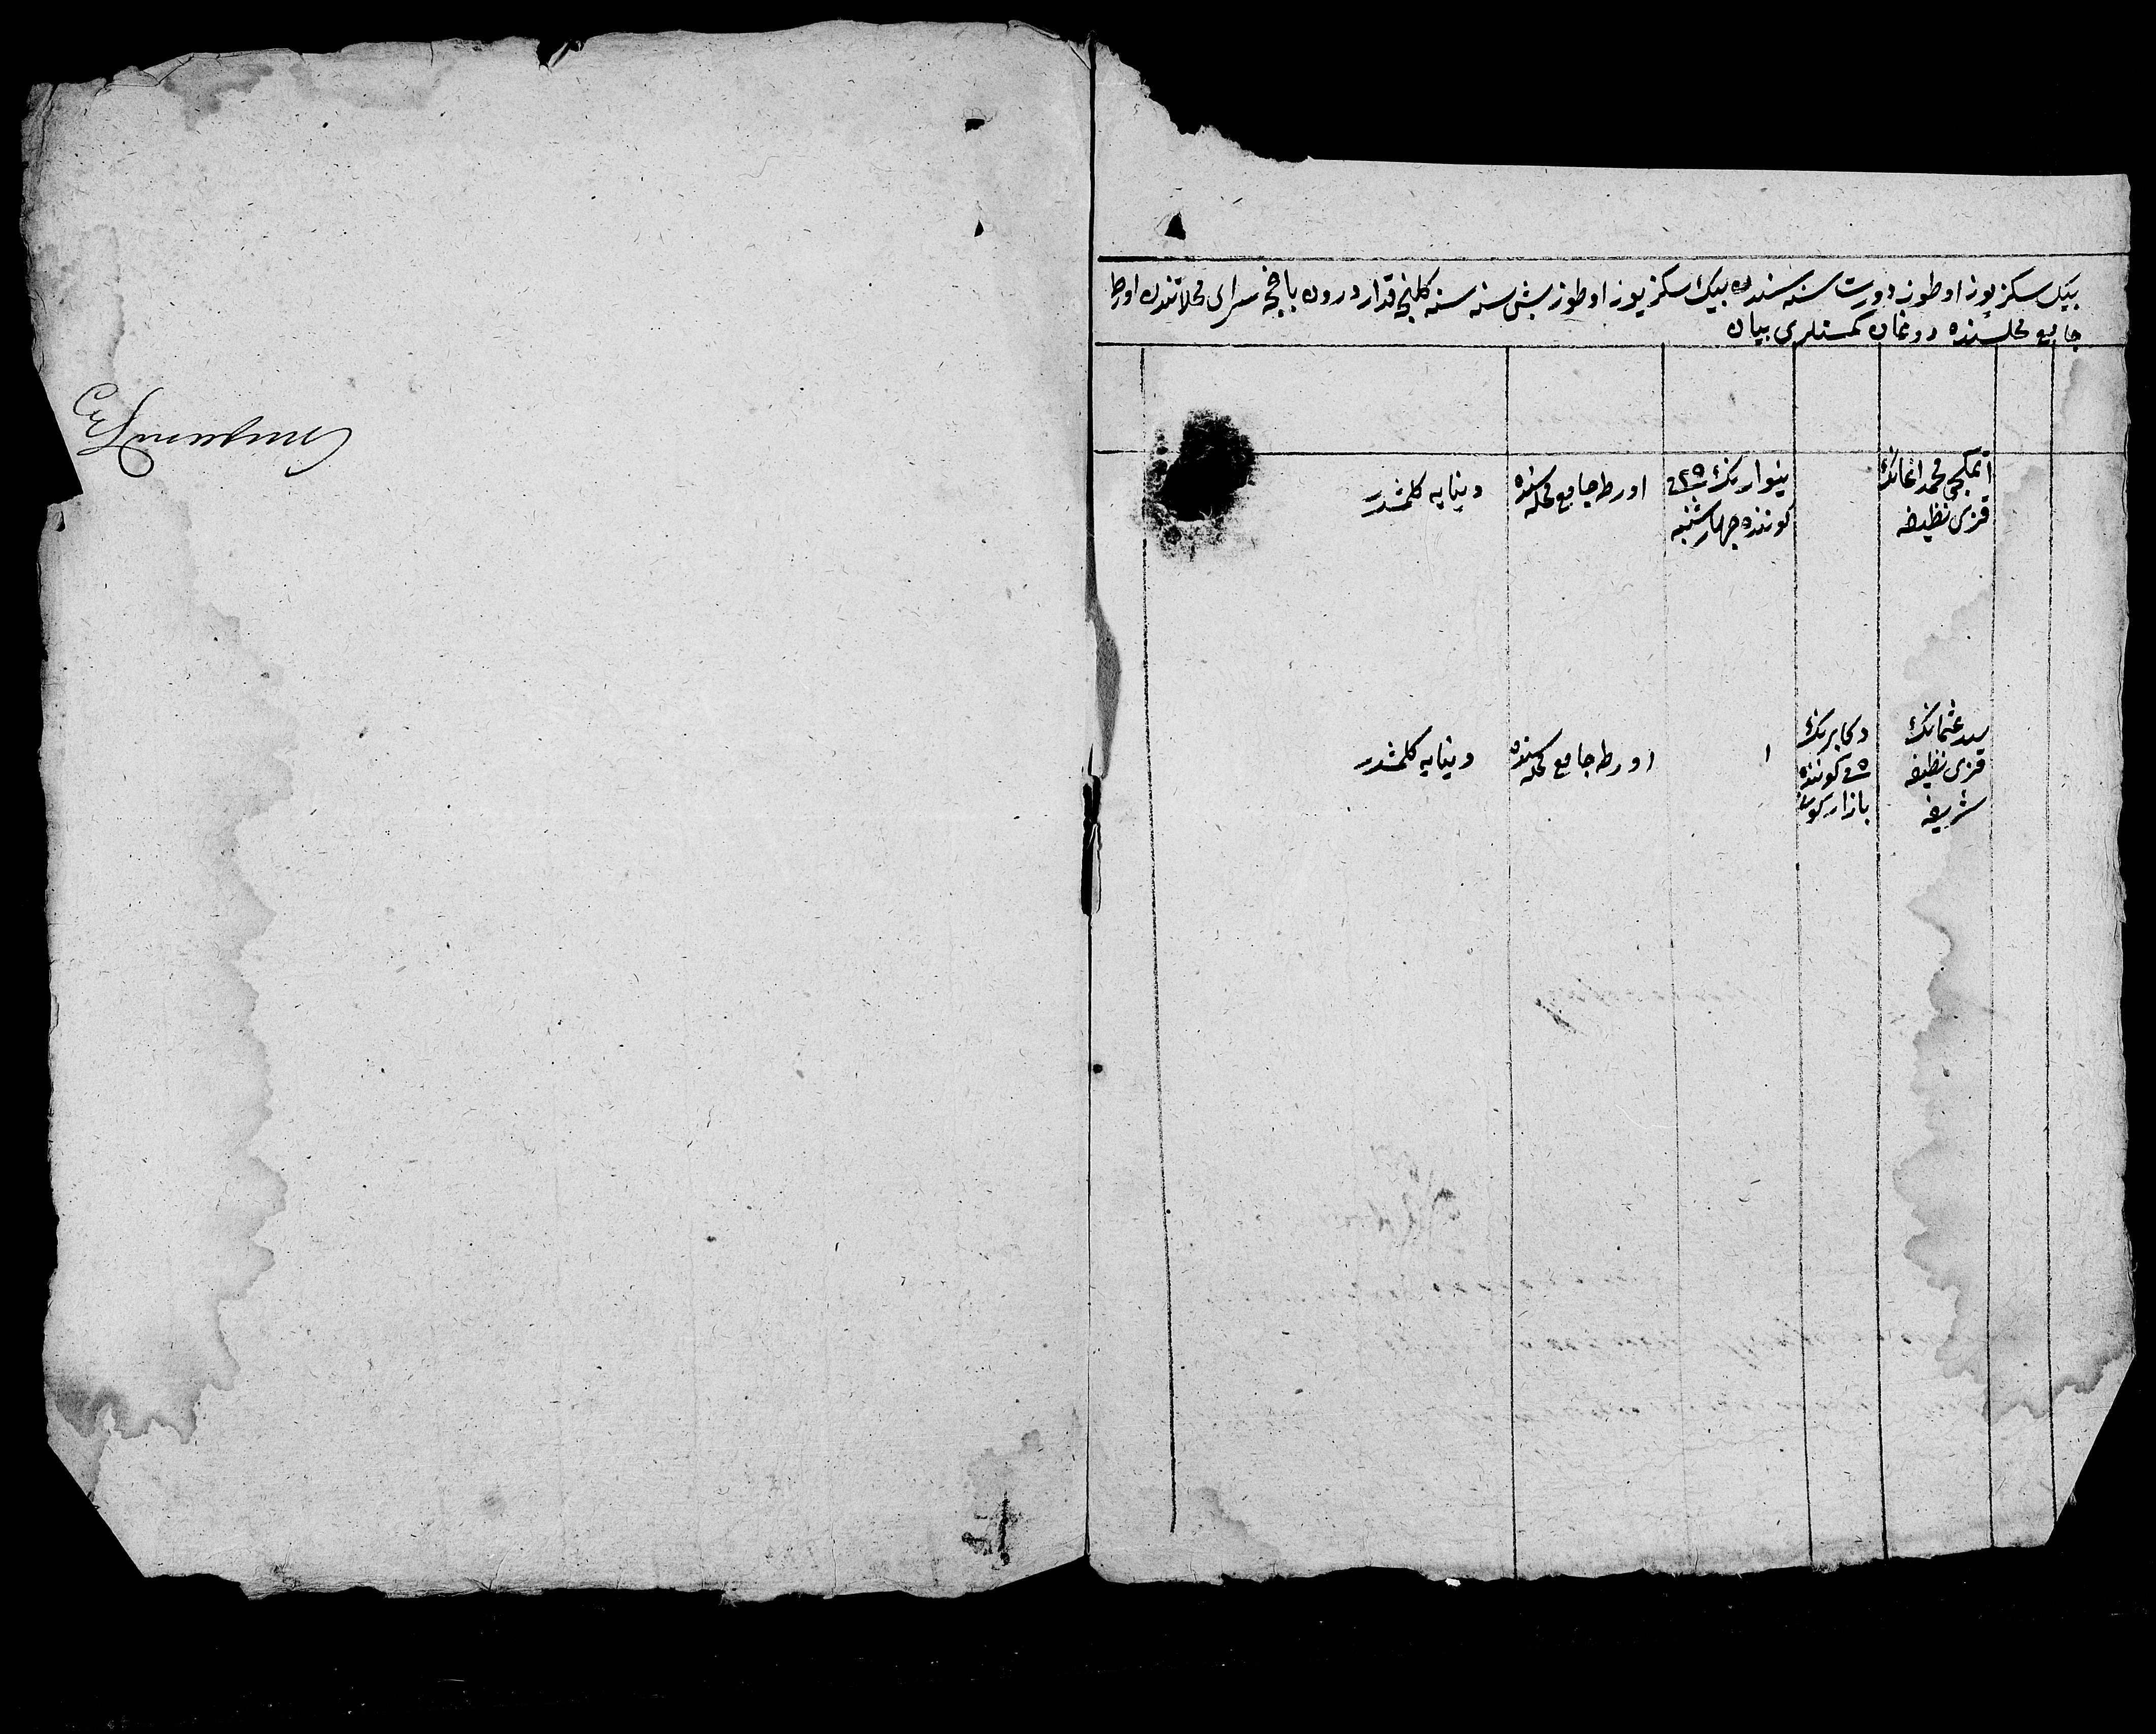 بیك سكز یوز اوطوز دورت سنه سندن بیك سكز یوز اوطوز بش سنه سنه كلنجه قدار درون باغچه سرای محلاتندن اورطه
جامع محله سنده دوغمان كمسنلری بیان
اتمكجی محمد اغانك
قزی نظیفه
ینوارینك ٢٥ نچی
كوننده چهارشنبه
اورطه جامع محله سنده
دنیایه كلمشدر
سید عثمانك
قزی نظیفه
شریفه
دكابرنك
٥ نچی كوننده
بازار كون
١
اورطه جامع محله سنده
دنیایه كلمشدر